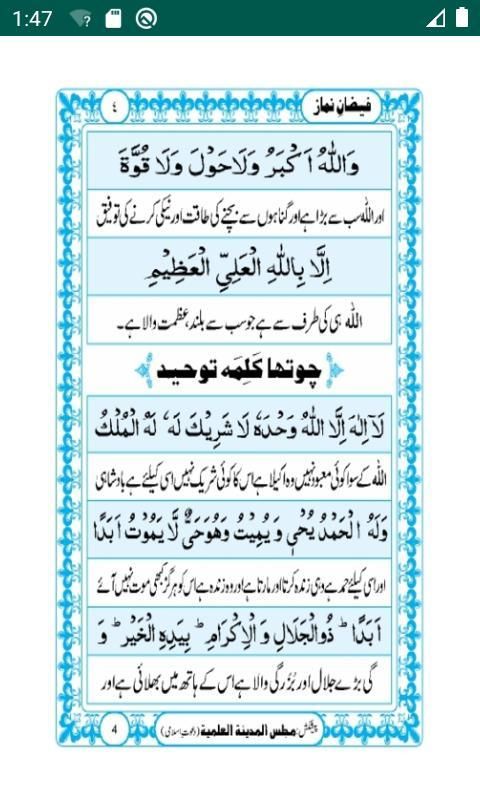 1:47
فیضانِ نماز
٤
وَاللهُ اَکْبَرُ وَلَاحَوْلَ وَلَا قُوَّةَ
اور اللہ سب سے بڑا ہے اور گناہوں سے بچنے کی طاقت اور نیکی کرنے کی توفیق
اِلَّا بِاللهِ الْعَلِیِّ الْعَظِیْمِ
اللہ ہی کی طرف سے ہے جو سب سے بلند، عظمت والا ہے۔
چوتھا کَلِمَہ توحید
لَآ اِلٰهَ اِلَّا اللهُ وَحْدَهٗ لَا شَرِیْكَ لَهٗ لَهُ الْمُلْكُ
اللہ کے سوا کوئی معبود نہیں وہ اکیلا ہے اس کا کوئی شریک نہیں اسی کیلئے ہے بادشاہی
وَلَهُ الْحَمْدُ یُحْیٖ وَ یُمِیْتُ وَهُوَحَیٌّ لَّا یَمُوْتُ اَبَدًا
اور اسی کیلئے حمد ہے وہی زندہ کرتا اور مارتا ہے اور وہ زندہ ہے اس کو ہرگز کبھی موت نہیں آئے
اَبَدًا ؕ ذُوالْجَلَالِ وَ الْاِکْرَامِ ؕ بِیَدِهِ الْخَیْر ؕ وَ
گی بڑے جلال اور بُزُرگی والا ہے اس کے ہاتھ میں بھلائی ہے اور
پیشکش: مجلس المدینة العلمیة (دعوتِ اسلامی)
4